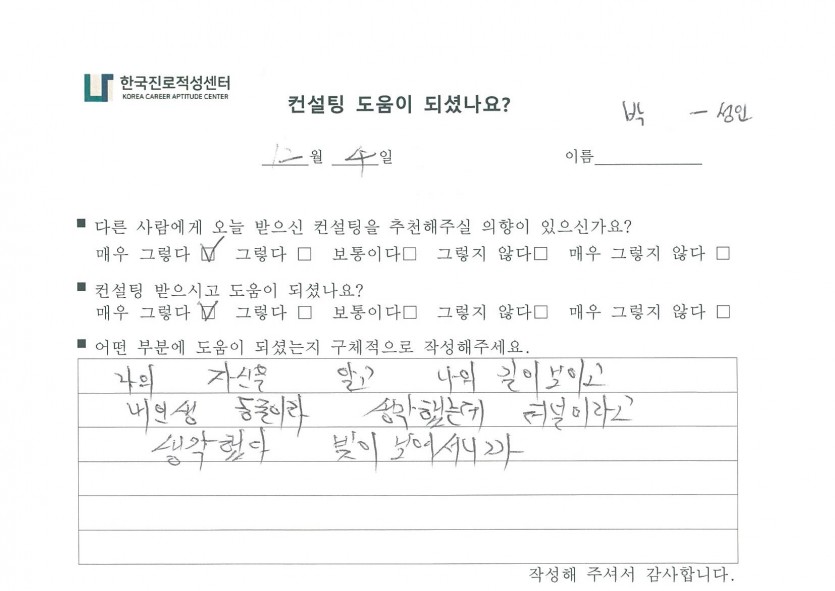 한국진로적성센터
KOREA CAREER APTITUDE CENTER
컨설팅 도움이 되셨나요?
박 - 성인
12월 4일 이름
■ 다른 사람에게 오늘 받으신 컨설팅을 추천해주실 의향이 있으신가요?
매우 그렇다 ☑ 그렇다 □ 보통이다□ 그렇지 않다□ 매우 그렇지 않다 □
■ 컨설팅 받으시고 도움이 되셨나요?
매우 그렇다 ☑ 그렇다 □ 보통이다□ 그렇지 않다□ 매우 그렇지 않다 □
■ 어떤 부분에 도움이 되셨는지 구체적으로 작성해주세요.
나의 자신을 알고 나의 길이 보이고
내인생 동굴이라 생각했는데 터널이라고
생각했다 빛이 보여서니까
작성해 주셔서 감사합니다.